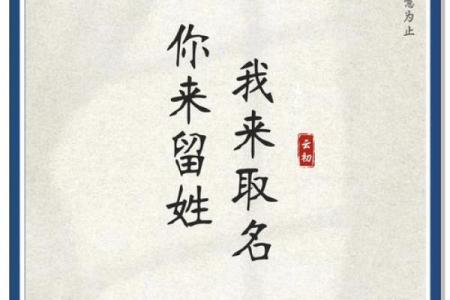 你来留姓
我来取名
云初
为止